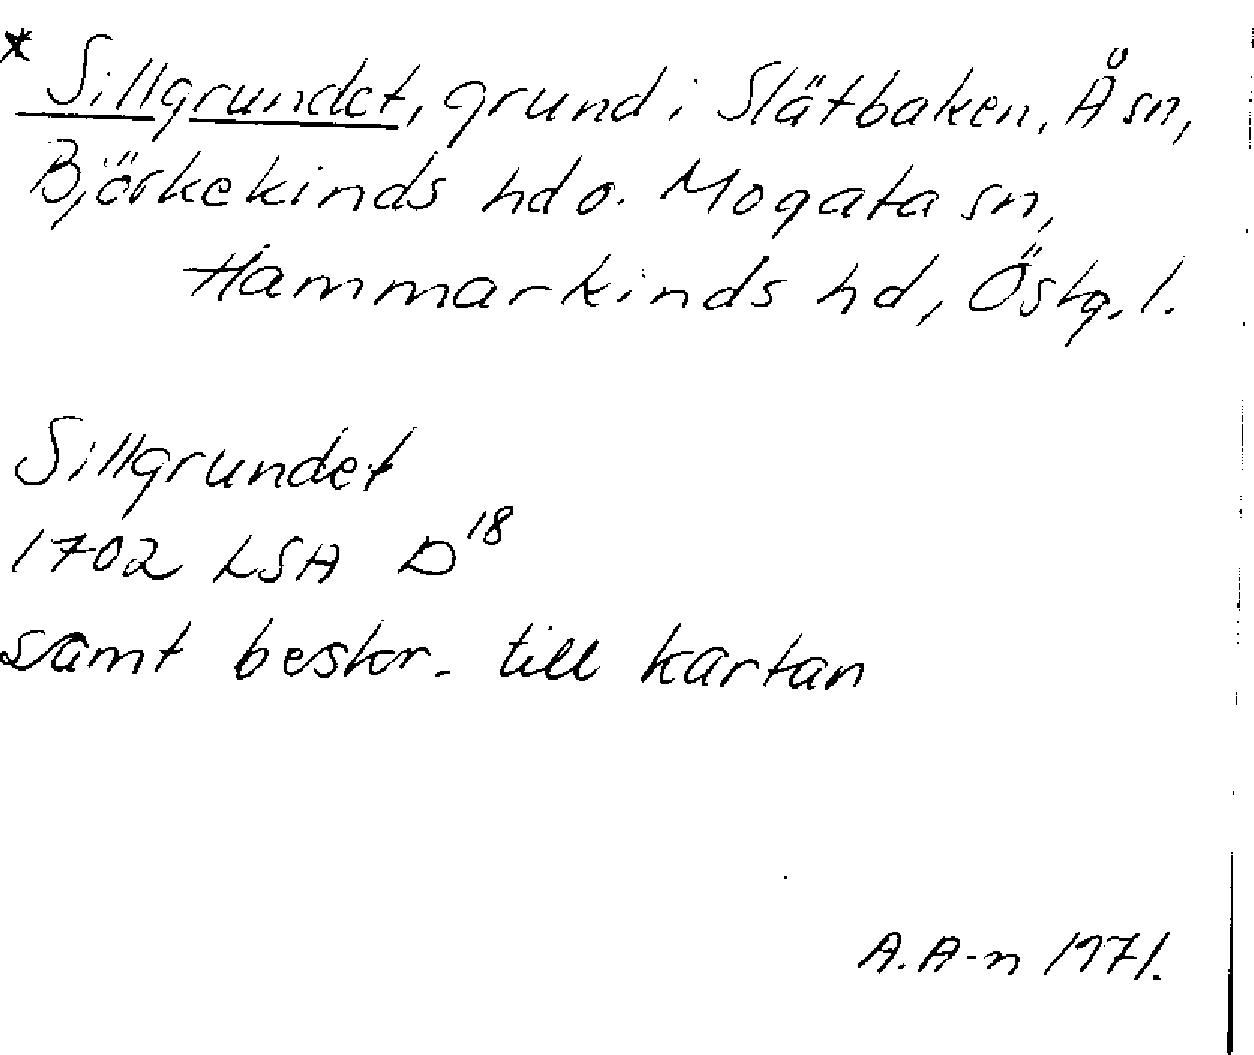 * Sillgrundet, grund i Slätbaken, Å sn,
Björkekinds hd o. Mogata sn,
Hammarkinds hd, Östg. l.
Sillgrundet
1702 LSA D18
samt beskr. till kartan
A. A-n 1971.